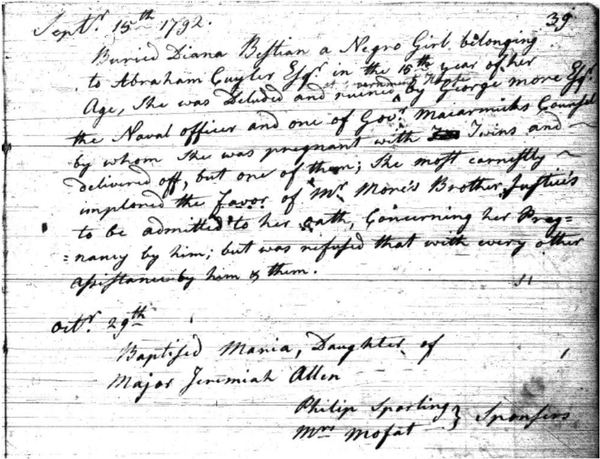 39
Septr. 15th 1792.
Buried Diana Bestian a Negro Girl belonging
to Abraham Cuyler Esqr. in the 15th year of her
Age, She was Deluded and ruined by George More Esqr.
the Naval officer and one of Govr. Macarmicks Counsel
by whom She was pregnant with Twins and
delivered off, but one of them; She most earnestly
implored the favor of Mr. More's Brother Justice's
to be admitted to her oath, Concerning her Preg=
=nancy by him; but was refused that with every other
assistance by him & them.
Octr. 29th
Baptised Maria, Daughter of
Major Jeremiah Allen
Philip Sparling } Sponsors
Mrs Mofat